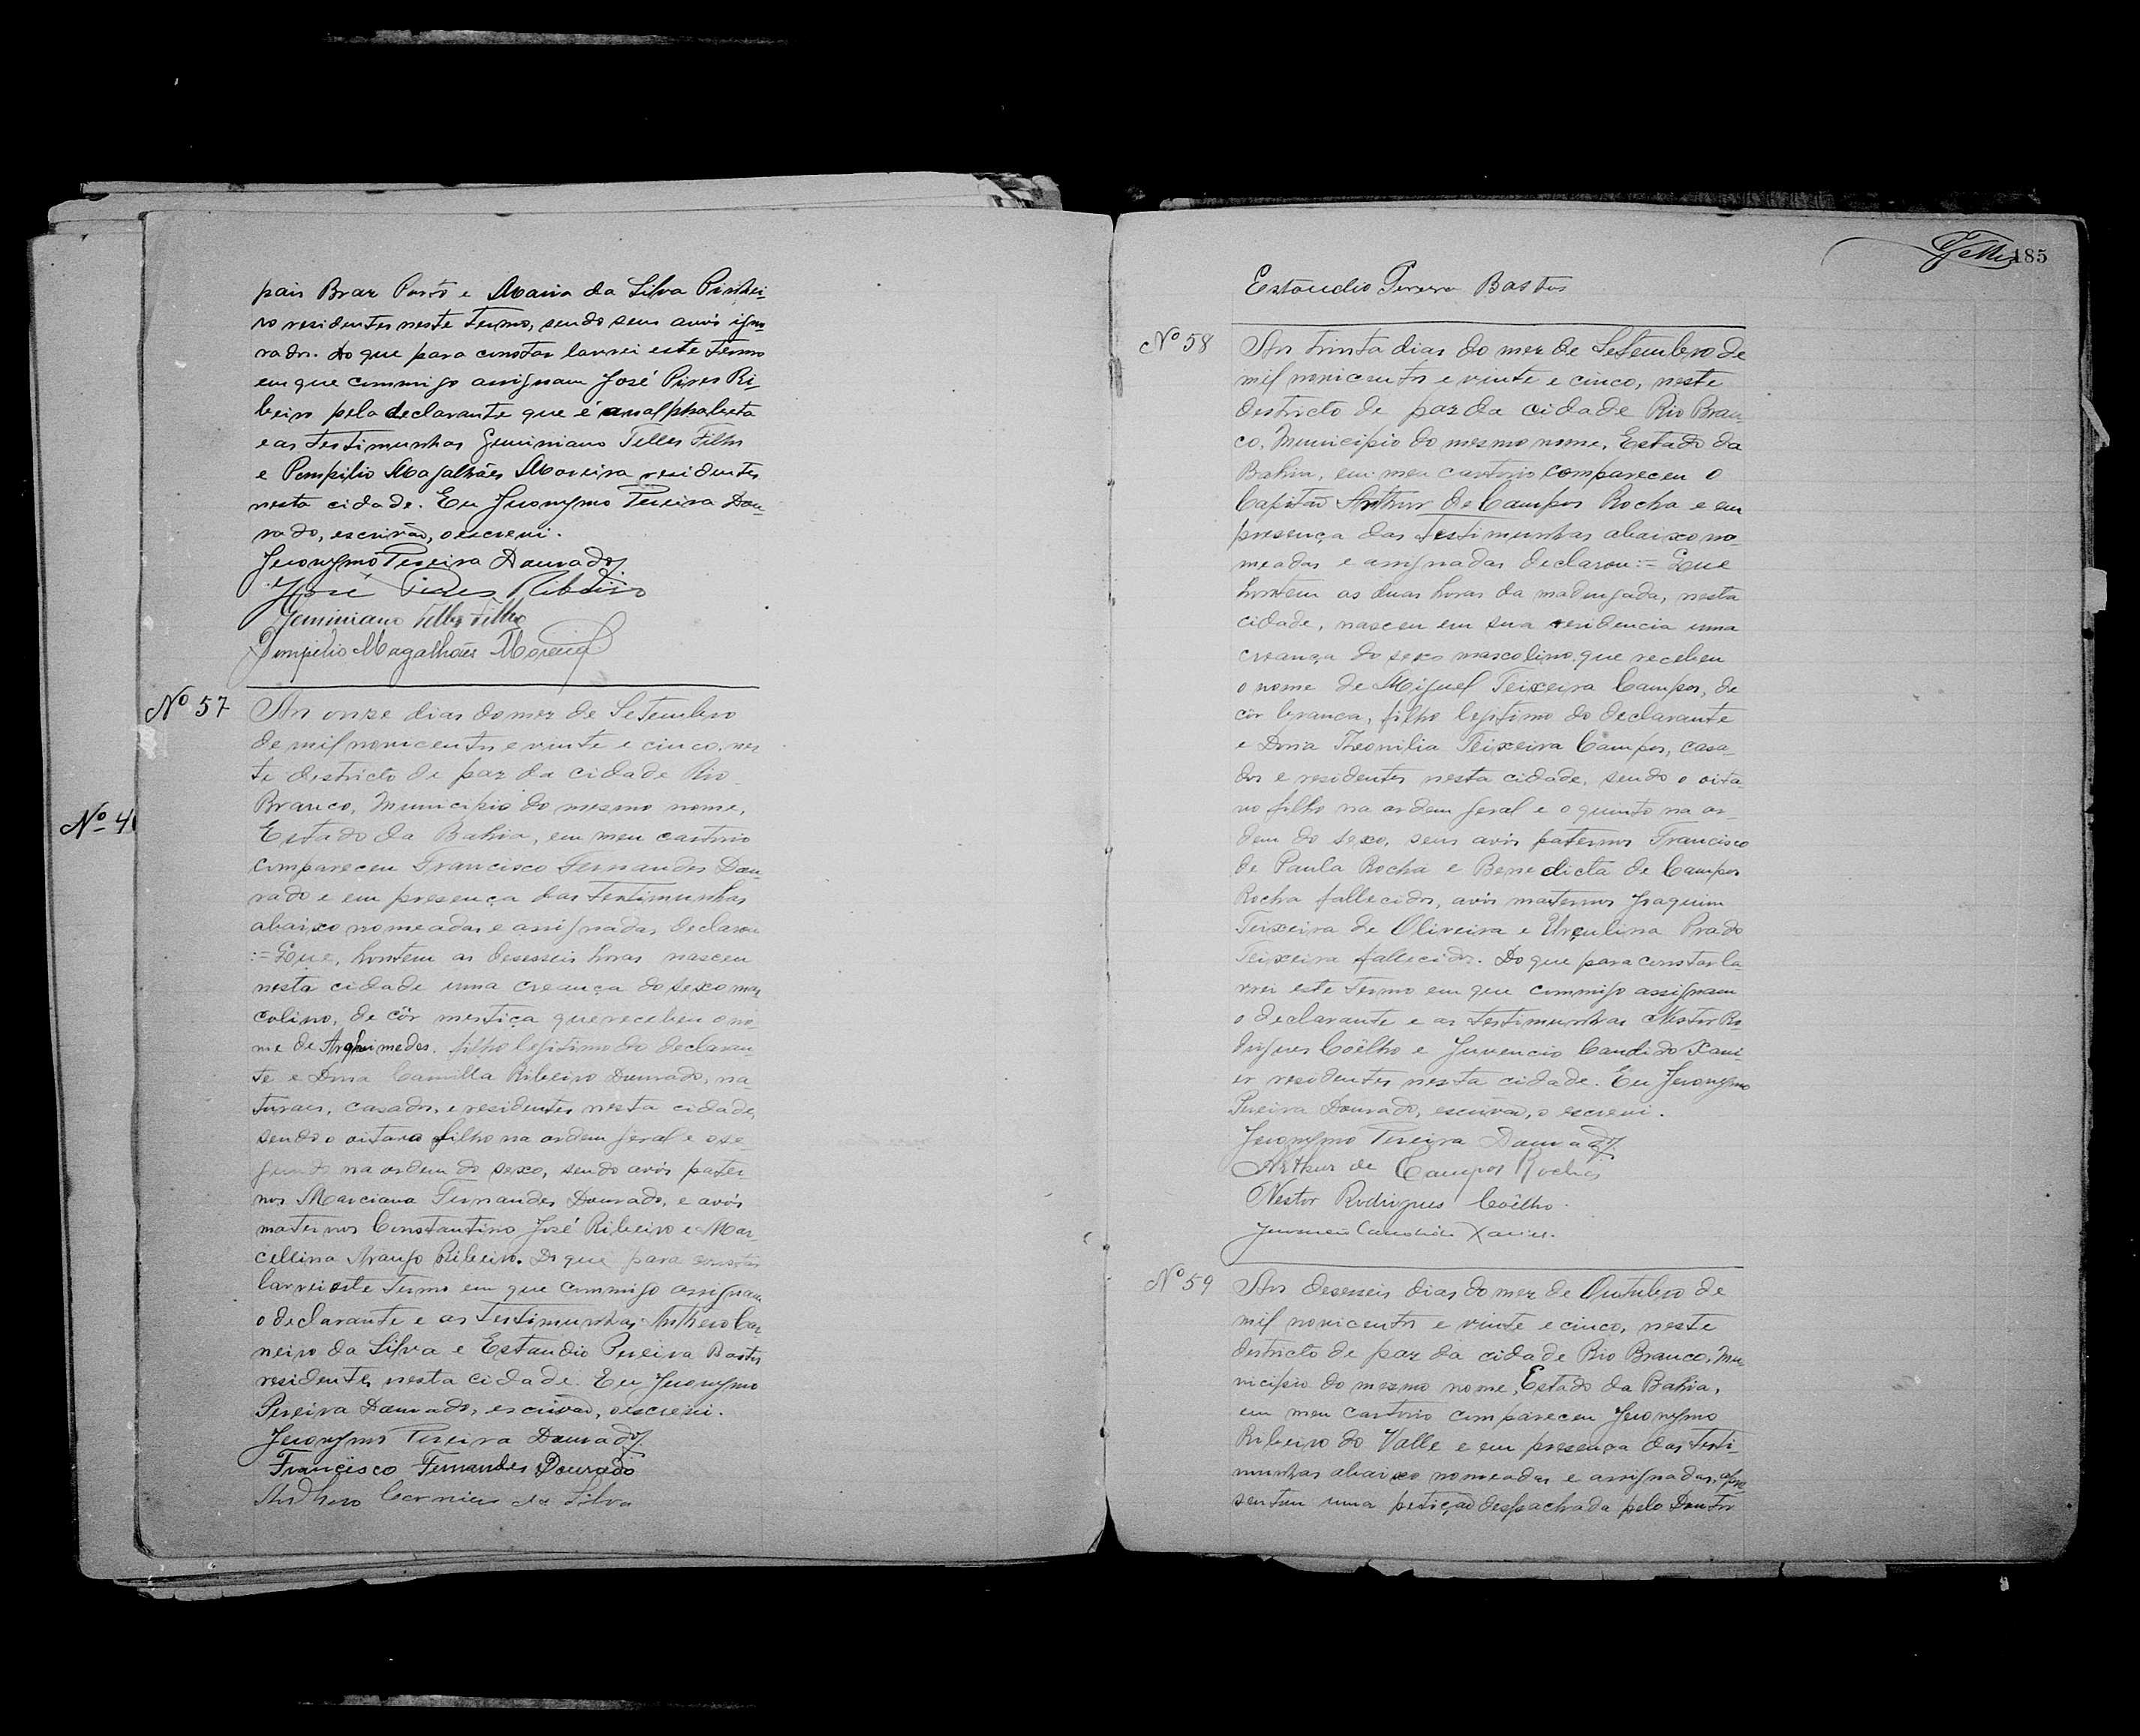 pais Braz Porto e Maria da Silva Pinhei-
ro residentes neste termo, sendo seus avós igno
rados. Do que para constar lavrei este termo
em que commigo assignam José Pires Ri-
beiro pela declarante que é analphabeta
e as testimunhas Geminiano Telles Filho
e Pompilio Magalhães Moreira residentes
nesta cidade. Eu Jeronymo Pereira Dou-
rado, escrivão, o escrevi.
Jeronymo Pereira Dourado
José Pires Ribeiro
Geminiano Telles Filho
Pompilio Magalhães Moreira
Nº 57
Aos onze dias do mez de Setembro
de mil novicentos e vinte e cinco, nes
te destricto de paz da cidade Rio
Branco, Municipio do mesmo nome,
Estado da Bahia, em meu cartorio
compareceu Francisco Fernandes Dou-
rado e em presença das testimunhas
abaixo nomeadas e assignadas, declarou
:= Que, hontem as desesseis horas nasceu
nesta cidade uma creança do sexo mas
colino, de côr mestiça que recebeu o no-
me de Arquimedes, filho legitimo do declaran-
te e Dona Camilla Ribeiro Dourado, na-
turaes, casados, e residentes nesta cidade,
sendo o oitavo filho na ordem geral e o se-
gundo na ordem do sexo, sendo avós pater
nos Marciana Fernandes Dourado, e avós
maternos Constantino José Ribeiro e Mar-
cellina Araujo Ribeiro. Do que para constar
lavrei este termo em que commigo assignam
o declarante e as testimunhas Anthero Car
neiro da Silva e Estaudio Pereira Bastos
residentes nesta cidade. Eu Jeronymo
Pereira Dourado, escrivão, o escrevi.
Jeronymo Pereira Dourado
Francisco Fernandes Dourado
Anthero Carneiro da Silva
Nº 4
185
Estaudio Pereira Bastos
Nº 58
Aos trinta dias do mez de Setembro de
mil novicentos e vinte e cinco, neste
destricto de paz da cidade Rio Bran-
co, Municipio do mesmo nome, Estado da
Bahia, em meu cartorio compareceu o
Capitão Arthur de Campos Rocha e em
presença das testimunhas abaixo no-
meadas e assignadas declarou:= Que
hontem as duas horas da madrugada, nesta
cidade, nasceu em sua residencia uma
creança do sexo mascolino que recebeu
o nome de Miguel Teixeira Campos, de
côr branca, filho legitimo do declarante
e Dona Theonilia Teixeira Campos, casa-
dos e residentes nesta cidade, sendo o oita
vo filho na ordem geral e o quinto na or-
dem do sexo, seus avós paternos Francisco
de Paula Rocha e Benedicta de Campos
Rocha fallecidos, avós maternos Joaquim
Teixeira de Oliveira e Urçulina Prado
Teixeira fallecidos. Do que para constar la-
vrei este termo em que commigo assignam
o declarante e as testimunhas Nestor Ro
drigues Coêlho e Juvencio Candido Xavi-
er residentes nesta cidade. Eu Jeronymo
Pereira Dourado, escrivão, o escrevi.
Jeronymo Pereira Dourado
Arthur de Campos Rocha
Nestor Rodrigues Coêlho.
Juvencio Candido Xavier.
Nº 59
Aos desesseis dias do mez de Outubro de
mil novicentos e vinte e cinco, neste
destricto de paz da cidade Rio Branco, Mu
nicipio do mesmo nome, Estado da Bahia,
em meu cartorio compareceu Jeronymo
Ribeiro do Valle e em presença das testi-
munhas abaixo nomeadas e assignadas, apre
sentou uma petição despachada pelo Doutor